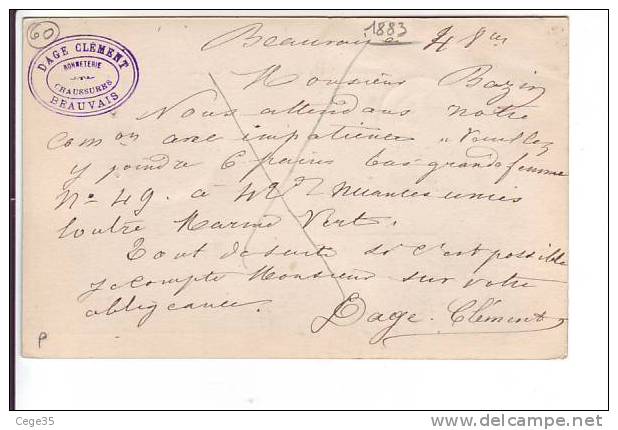 60
1883
DAGE CLÉMENT
BONNETERIE
CHAUSSURES
BEAUVAIS
Beauvais le 4 8bre
Monsieur Bazin
Nous attendons notre
comon avec impatience, Veuillez
y joindre 6 paires bas grande femme
No 49. à 42 nuances unies
loutre Marine Vert.
Tout de suite si c'est possible
je compte Monsieur sur votre
obligeance.
Dage-Clément
P
Cege35
www.delcampe.net